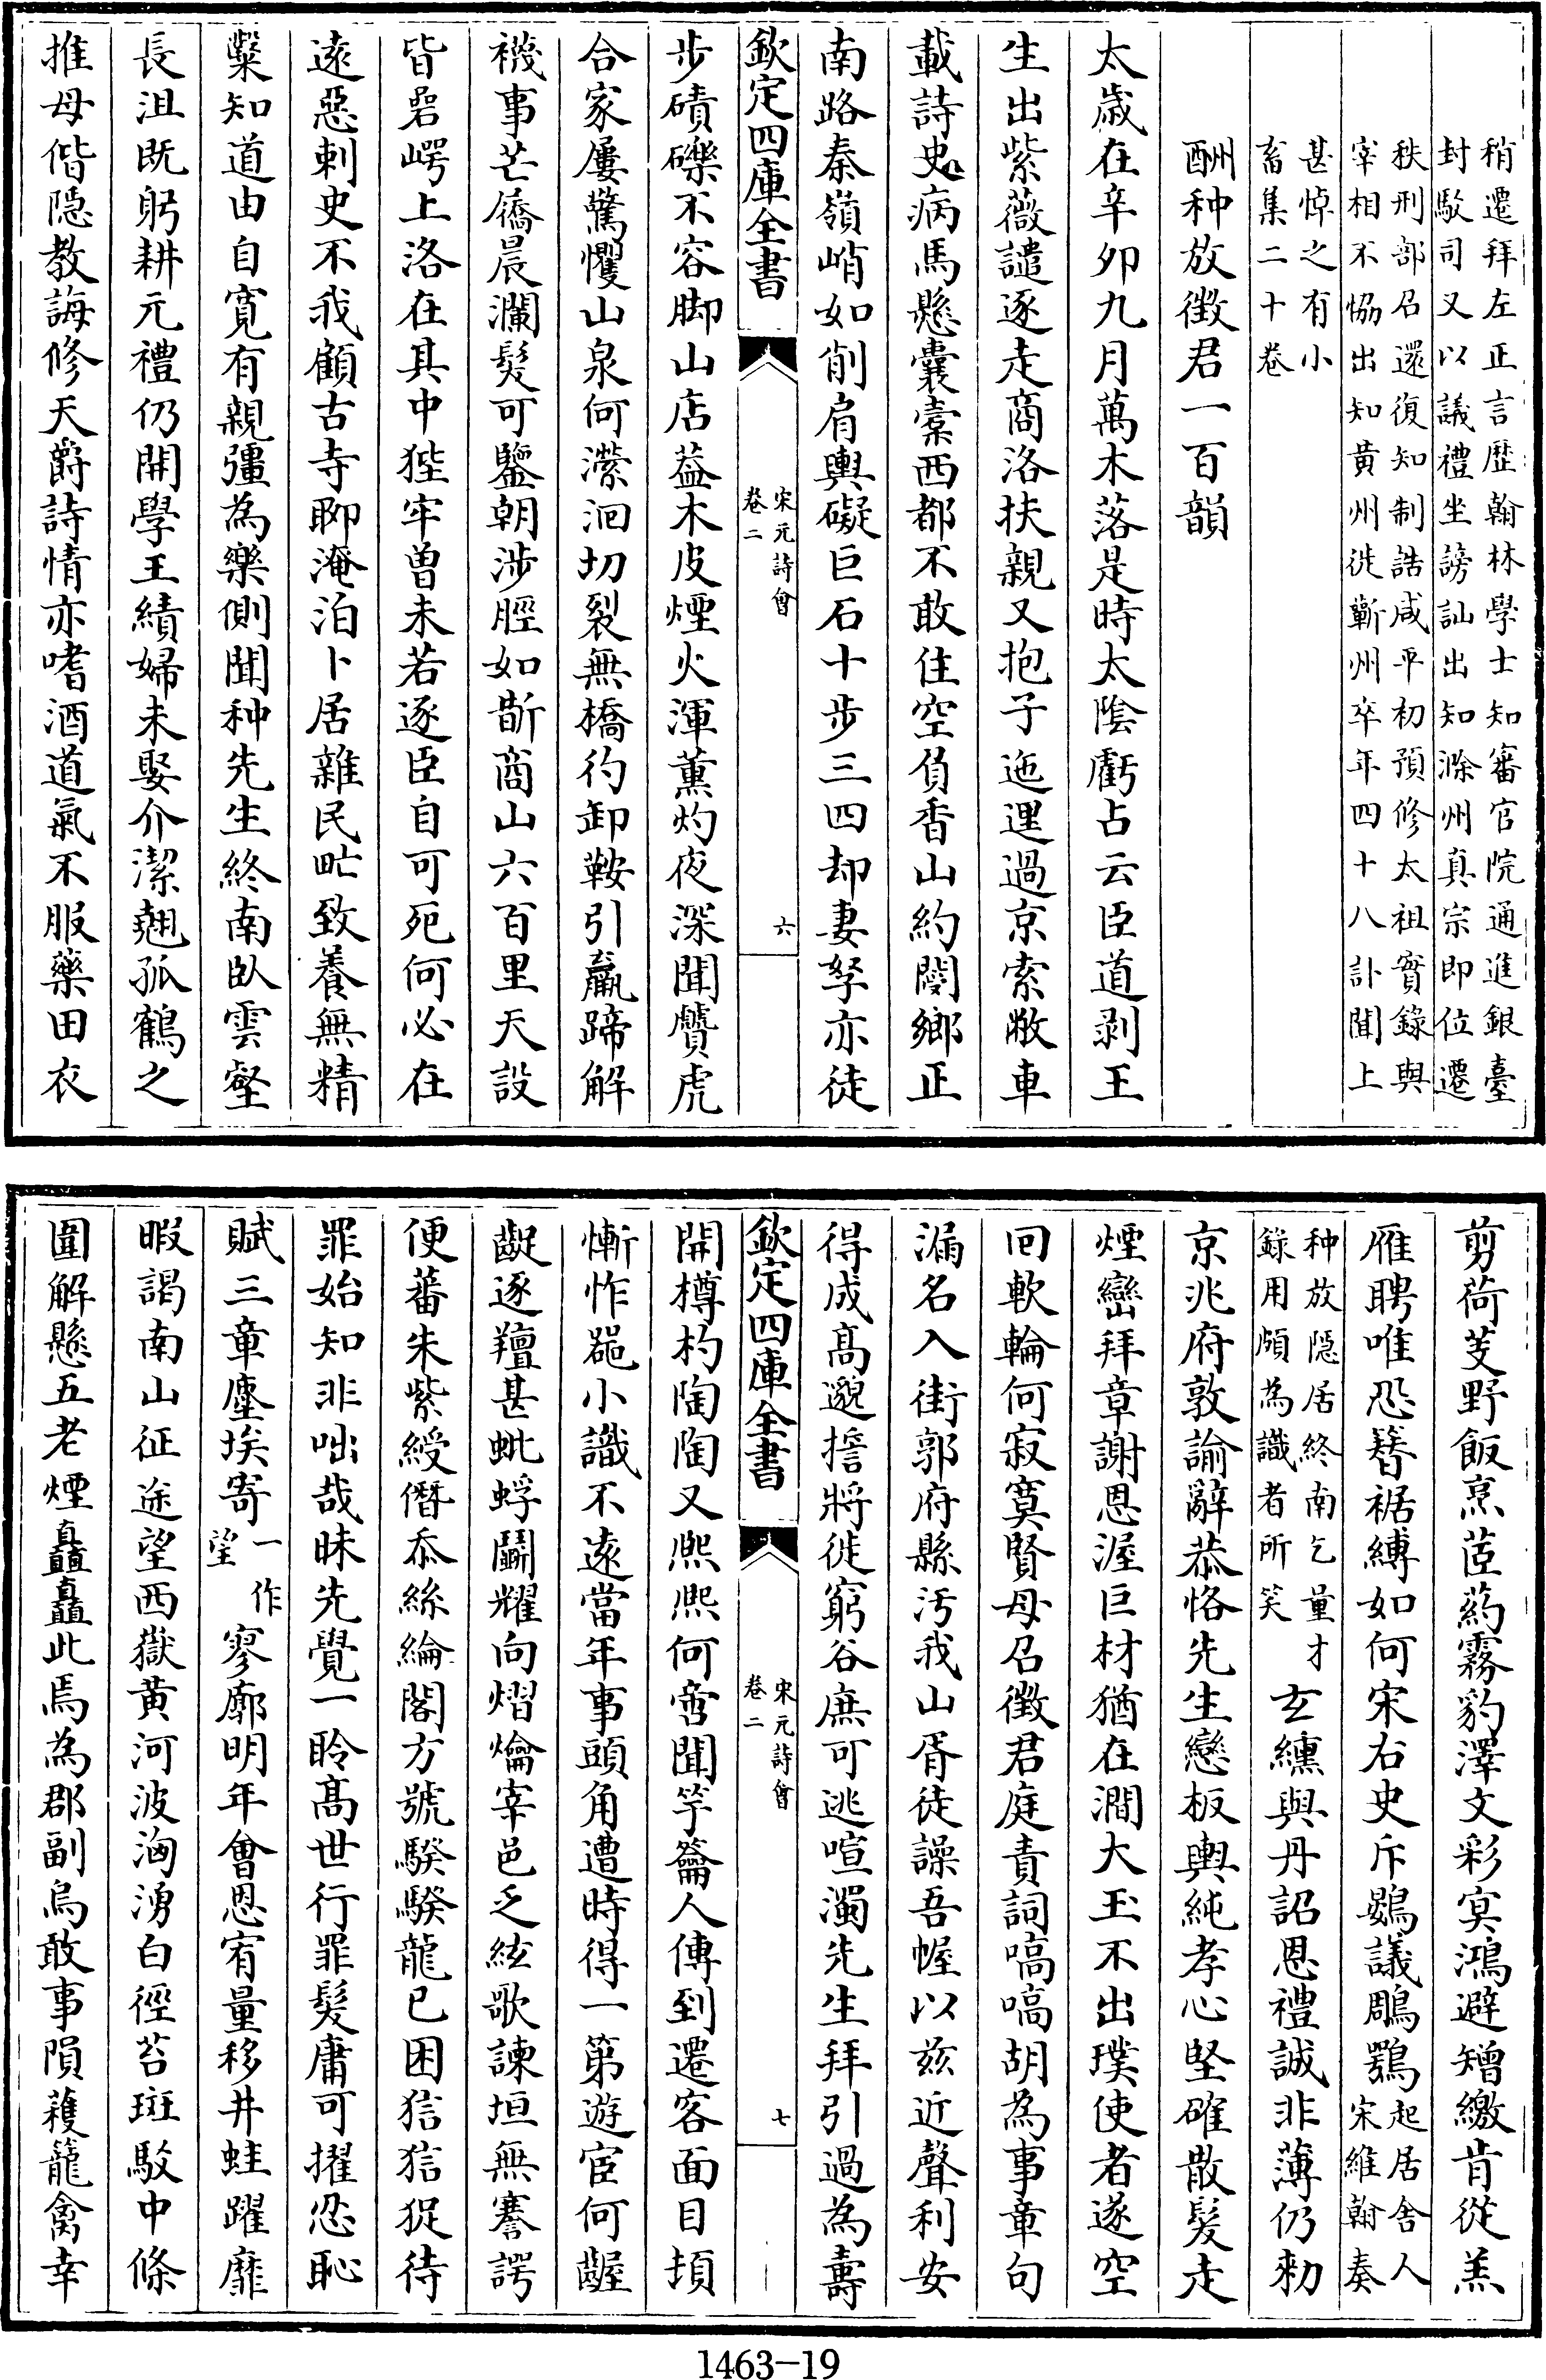 稍遷拜左正言歷翰林學士知審官院通進銀臺
封駁司又以議禮坐謗訕出知滁州真宗即位遷
秩刑部召還復知制誥咸平初預修太祖實錄與
宰相不恊出知黃州徙蘄州卒年四十八訃聞上
甚悼之有小
畜集二十卷
酬种放徵君一百韻
太歲在辛卯九月萬木落是時太陰虧占云臣道剥王
生出紫薇譴逐走商洛扶親又抱子迤邐過京索敝車
載詩史病馬懸囊橐西都不敢住空負香山約閿鄉正
南路秦嶺峭如削肩輿礙巨石十步三四却妻孥亦徒
欽定四庫全書
宋元詩會
卷二
六
步磧礫不容脚山店葢木皮煙火渾薰灼夜深聞贙虎
合家屢驚懼山泉何濴洄切裂無橋彴卸鞍引羸蹄解
襪事芒屩晨瀾髮可鑒朝涉脛如斮商山六百里天設
皆碞崿上洛在其中狴牢曽未若逐臣自可死何必在
逺惡剌史不我顧古寺聊淹泊卜居雜民甿致養無精
糳知道由自寛有親彊為樂側聞种先生終南臥雲壑
長沮既躬耕元禮仍開學王績婦未娶介潔翹孤鶴之
推母偕隠教誨修天爵詩情亦嗜酒道氣不服藥田衣
剪荷芰野飯烹茝葯霧豹澤文彩冥鴻避矰繳肯從羔
雁聘唯恐簪裾縛如何宋右史斥鷃議鵰鶚
起居舍人
宋維翰奏
种放隠居終南乞量才
錄用頗為識者所笑
𤣥纁與丹詔恩禮誠非薄仍勅
京兆府敦諭辭恭恪先生戀板輿純孝心堅確散髮走
煙巒拜章謝恩渥巨材猶在澗大玉不出璞使者遂空
回軟輪何寂寞賢母召徵君庭責詞嗃嗃胡為事章句
漏名入街郭府縣汚我山胥徒譟吾幄以兹近聲利安
得成髙邈揞將徙窮谷庶可逃喧濁先生拜引過為壽
欽定四庫全書
宋元詩會
卷二
七
開樽杓陶陶又熈熈何啻聞竽籥人傳到遷客面目頄
慚怍噐小識不逺當年事頭角遭時得一第遊宦何齷
齪逐羶甚蚍蜉鬭耀向熠爚宰邑乏絃歌諫垣無謇諤
便蕃朱紫綬僭忝絲綸閣方號騤騤龍已困狺狺捉待
罪始知非咄哉昧先覺一聆髙世行罪髮庸可擢忍恥
賦三章塵埃寄
一作
望
寥廓明年㑹恩宥量移井蛙躍靡
暇謁南山征途望西嶽黄河波洶湧白徑苔斑駁中條
圍解懸五老煙矗矗此焉為郡副烏敢事隕蘀籠禽幸
1463-19